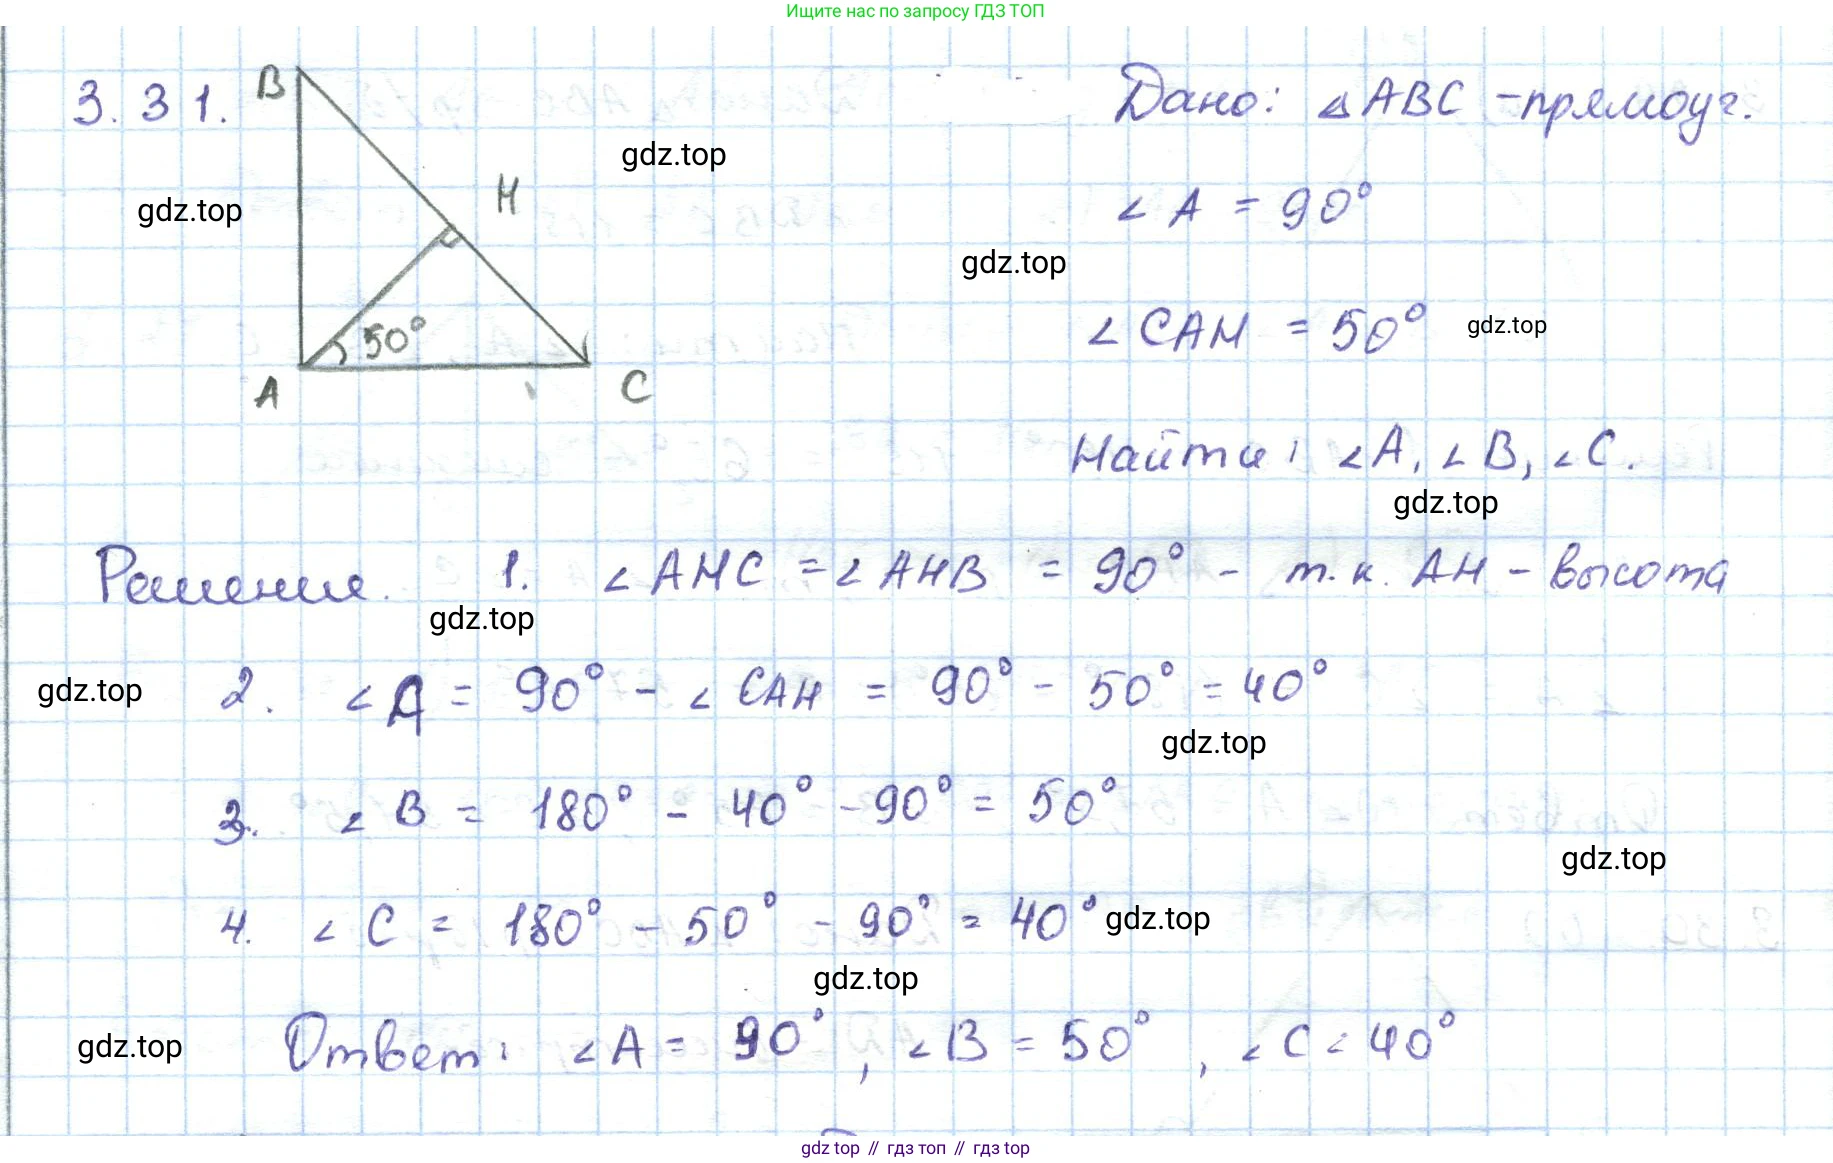 Ищите нас по запросу ГДЗ ТОП
3.31.
B
H
50°
A
C
gdz.top
gdz.top
Дано: ⊿ABC -прямоуг.
∠A = 90°
gdz.top
∠CAH = 50°
gdz.top
Найти: ∠A, ∠B, ∠C.
gdz.top
Решение. 1. ∠AHC = ∠AHB = 90° - т.к. AH - высота
gdz.top
gdz.top
2. ∠A = 90° - ∠CAH = 90° - 50° = 40°
gdz.top
3. ∠B = 180° - 40° - 90° = 50°
gdz.top
4. ∠C = 180° - 50° - 90° = 40°
gdz.top
gdz.top
gdz.top
Ответ: ∠A = 90°, ∠B = 50°, ∠C = 40°
gdz top // гдз топ // гдз top